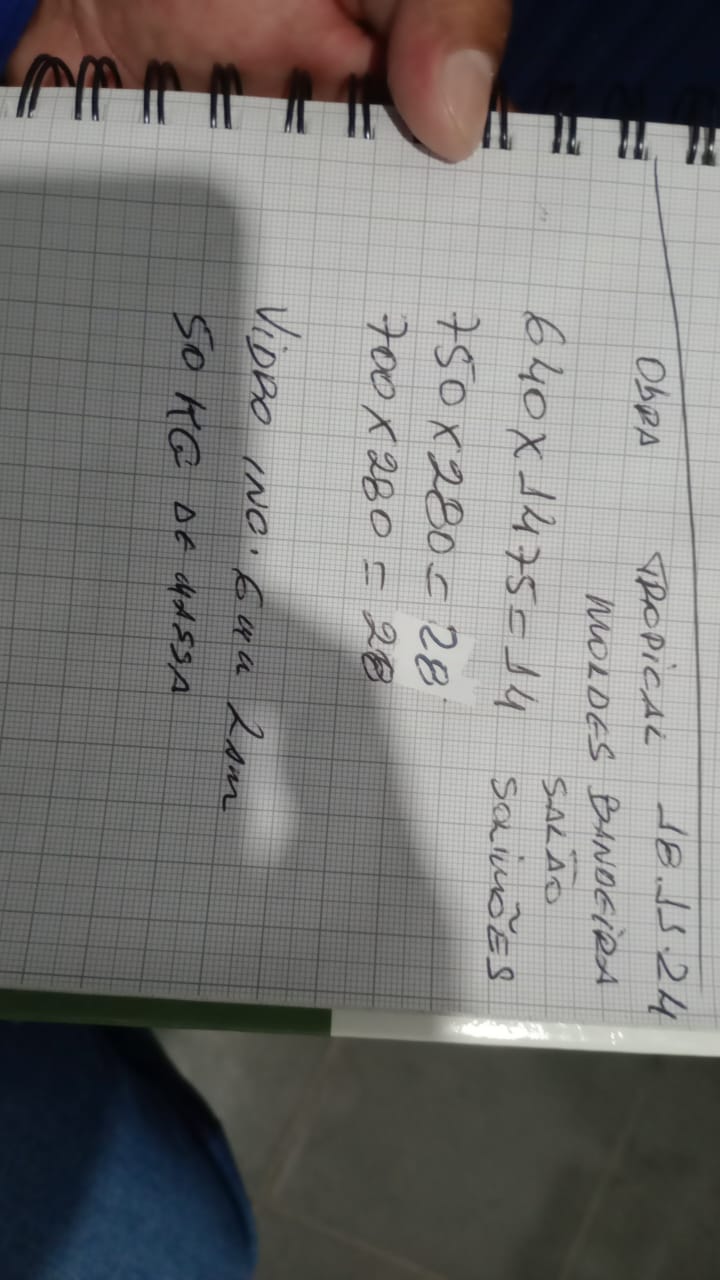 OBRA TROPICAL 18.11.24
MOLDES BANDEIRA
SALÃO
SOLIMÕES
640 X 1475 = 14
750 X 280 = 28
700 X 280 = 28
VIDRO INC. 6MM 2,20M
50 KG DE MASSA